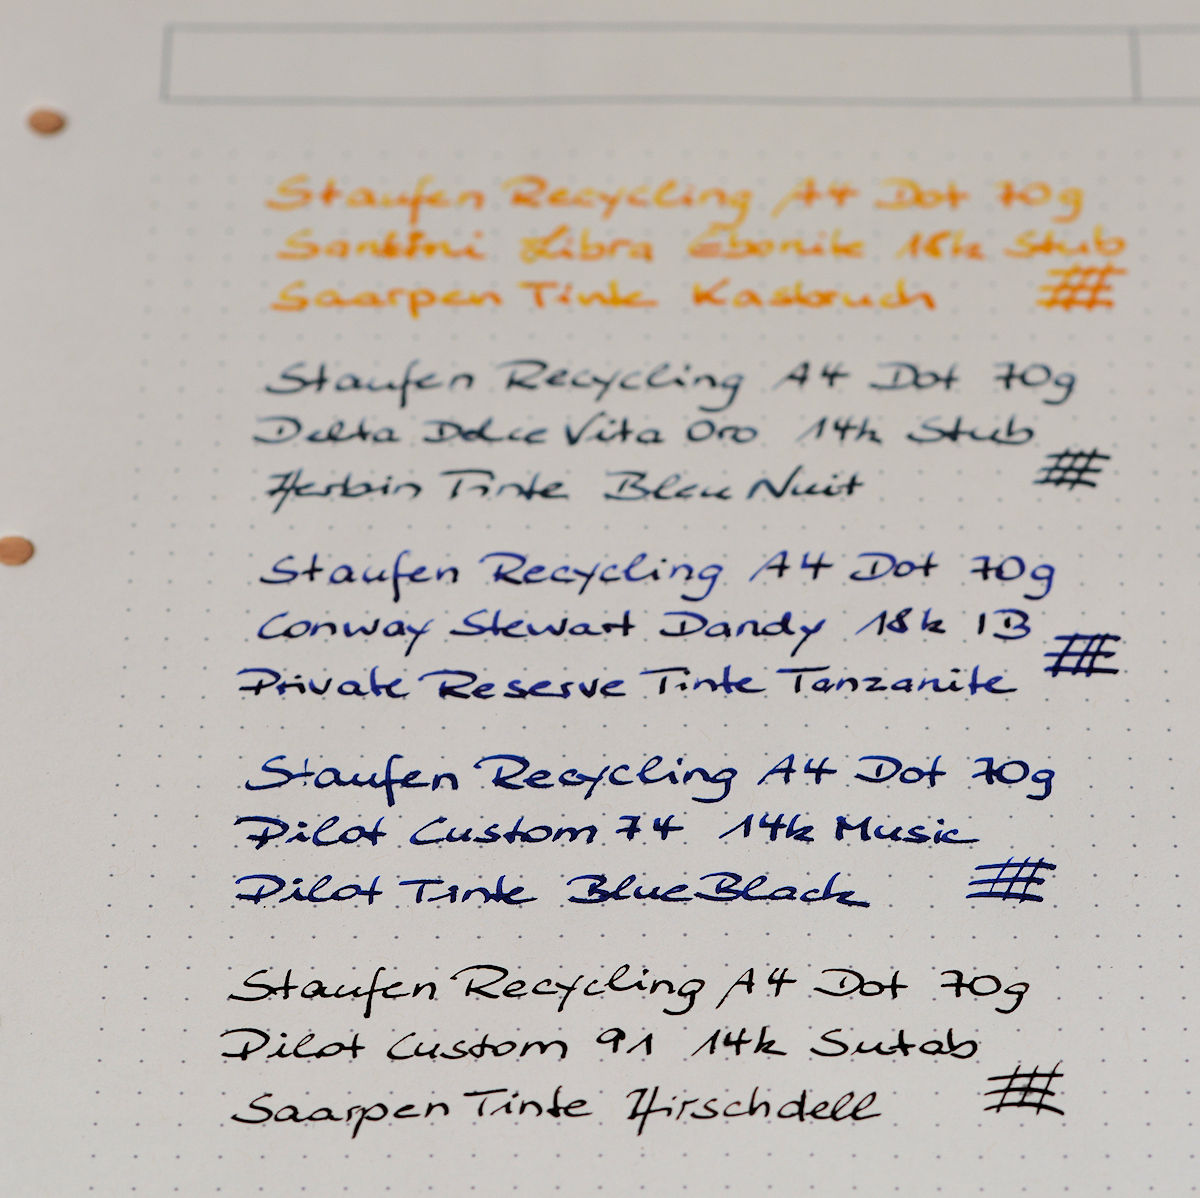 Staufen Recycling A4 Dot 70g
Santini Libra Ebonite 18k Stub
Saarpen Tinte Kasbruch
Staufen Recycling A4 Dot 70g
Delta Dolce Vita Oro 14k Stub
Herbin Tinte Bleu Nuit
Staufen Recycling A4 Dot 70g
Conway Stewart Dandy 18k IB
Private Reserve Tinte Tanzanite
Staufen Recycling A4 Dot 70g
Pilot Custom 74 14k Music
Pilot Tinte BlueBlack
Staufen Recycling A4 Dot 70g
Pilot Custom 91 14k Sutab
Saarpen Tinte Hirschdell